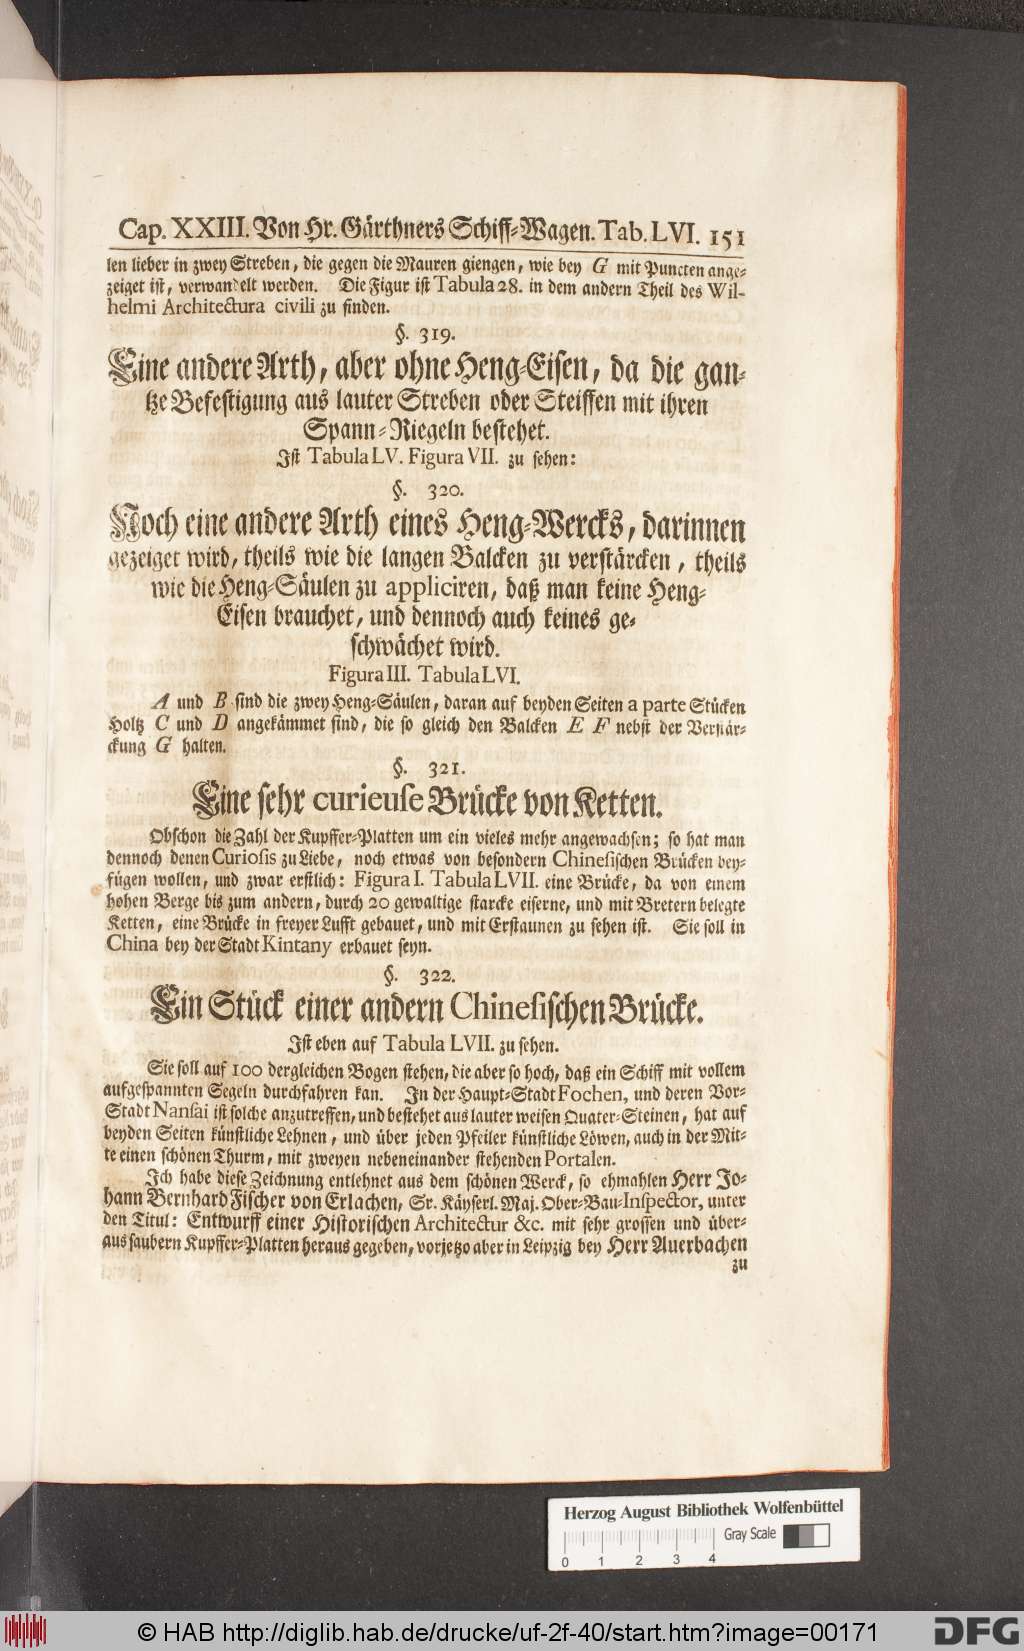 Cap. XXIII. Von Hr. Gärthners Schiff-Wagen. Tab. LVI. 151
len lieber in zwey Streben, die gegen die Mauren giengen, wie bey G mit Puncten ange-
zeiget ist, verwandelt werden. Die Figur ist Tabula 28. in dem andern Theil des Wil-
helmi Architectura civili zu finden.
§. 319.
Eine andere Arth, aber ohne Heng-Eisen, da die gan-
tze Befestigung aus lauter Streben oder Steiffen mit ihren
Spann-Riegeln bestehet.
Ist Tabula LV. Figura VII. zu sehen:
§. 320.
Noch eine andere Arth eines Heng-Wercks, darinnen
gezeiget wird, theils wie die langen Balcken zu verstärcken, theils
wie die Heng-Säulen zu appliciren, daß man keine Heng-
Eisen brauchet, und dennoch auch keines ge-
schwächet wird.
Figura III. Tabula LVI.
A und B sind die zwey Heng-Säulen, daran auf beyden Seiten a parte Stücken
Holtz C und D angekämmet sind, die so gleich den Balcken E F nebst der Verstär-
ckung G halten.
§. 321.
Eine sehr curieuse Brücke von Ketten.
Obschon die Zahl der Kupffer-Platten um ein vieles mehr angewachsen; so hat man
dennoch denen Curiosis zu Liebe, noch etwas von besondern Chinesischen Brücken bey-
fügen wollen, und zwar erstlich: Figura I. Tabula LVII. eine Brücke, da von einem
hohen Berge bis zum andern, durch 20 gewaltige starcke eiserne, und mit Bretern belegte
Ketten, eine Brücke in freyer Lufft gebauet, und mit Erstaunen zu sehen ist. Sie soll in
China bey der Stadt Kintany erbauet seyn.
§. 322.
Ein Stück einer andern Chinesischen Brücke.
Ist eben auf Tabula LVII. zu sehen.
Sie soll auf 100 dergleichen Bogen stehen, die aber so hoch, daß ein Schiff mit vollem
aufgespannten Segeln durchfahren kan. In der Haupt-Stadt Fochen, und deren Vor-
Stadt Nansai ist solche anzutreffen, und bestehet aus lauter weisen Quater-Steinen, hat auf
beyden Seiten künstliche Lehnen, und über jeden Pfeiler künstliche Löwen, auch in der Mit-
te einen schönen Thurm, mit zweyen nebeneinander stehenden Portalen.
Ich habe diese Zeichnung entlehnet aus dem schönen Werck, so ehmahlen Herr Jo-
hann Bernhard Fischer von Erlachen, Sr. Käyserl. Maj. Ober-Bau-Inspector, unter
den Titul: Entwurff einer Historischen Architectur &c. mit sehr grossen und über-
aus saubern Kupffer-Platten heraus gegeben, vorjetzo aber in Leipzig bey Herr Auerbachen
zu
Herzog August Bibliothek Wolfenbüttel
Gray Scale
0 1 2 3 4
© HAB http://diglib.hab.de/drucke/uf-2f-40/start.htm?image=00171
DFG